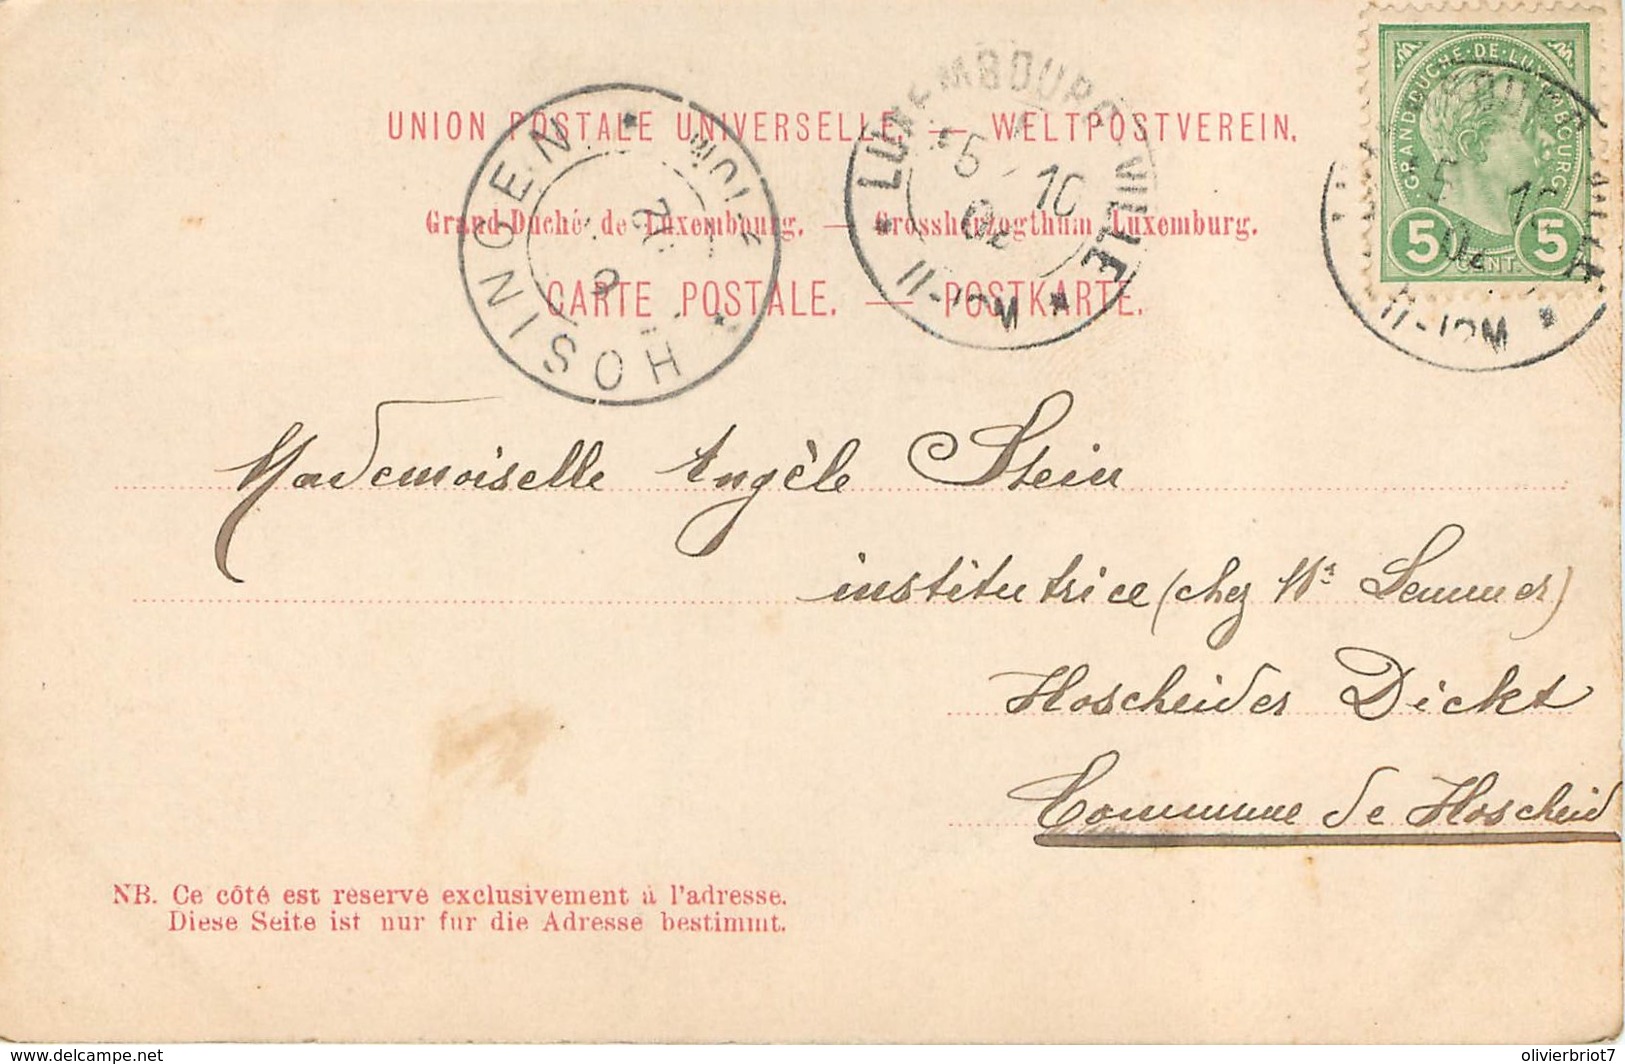 UNION POSTALE UNIVERSELLE. — WELTPOSTVEREIN.
Grand-Duché de Luxembourg. — Grossherzogthum Luxemburg.
CARTE POSTALE. — POSTKARTE.
HOSINGEN
LUXEMBOURG-VILLE
5 10
02
11-12M
GRAND-DUCHÉ-DE-LUXEMBOURG
5 CENT. 5
Mademoiselle Angèle Stein
institutrice (chez
Hoscheider Dickt
Commune de Hoscheid
NB. Ce côté est réservé exclusivement à l'adresse.
Diese Seite ist nur für die Adresse bestimmt.
delcampe.net
olivierbriot7